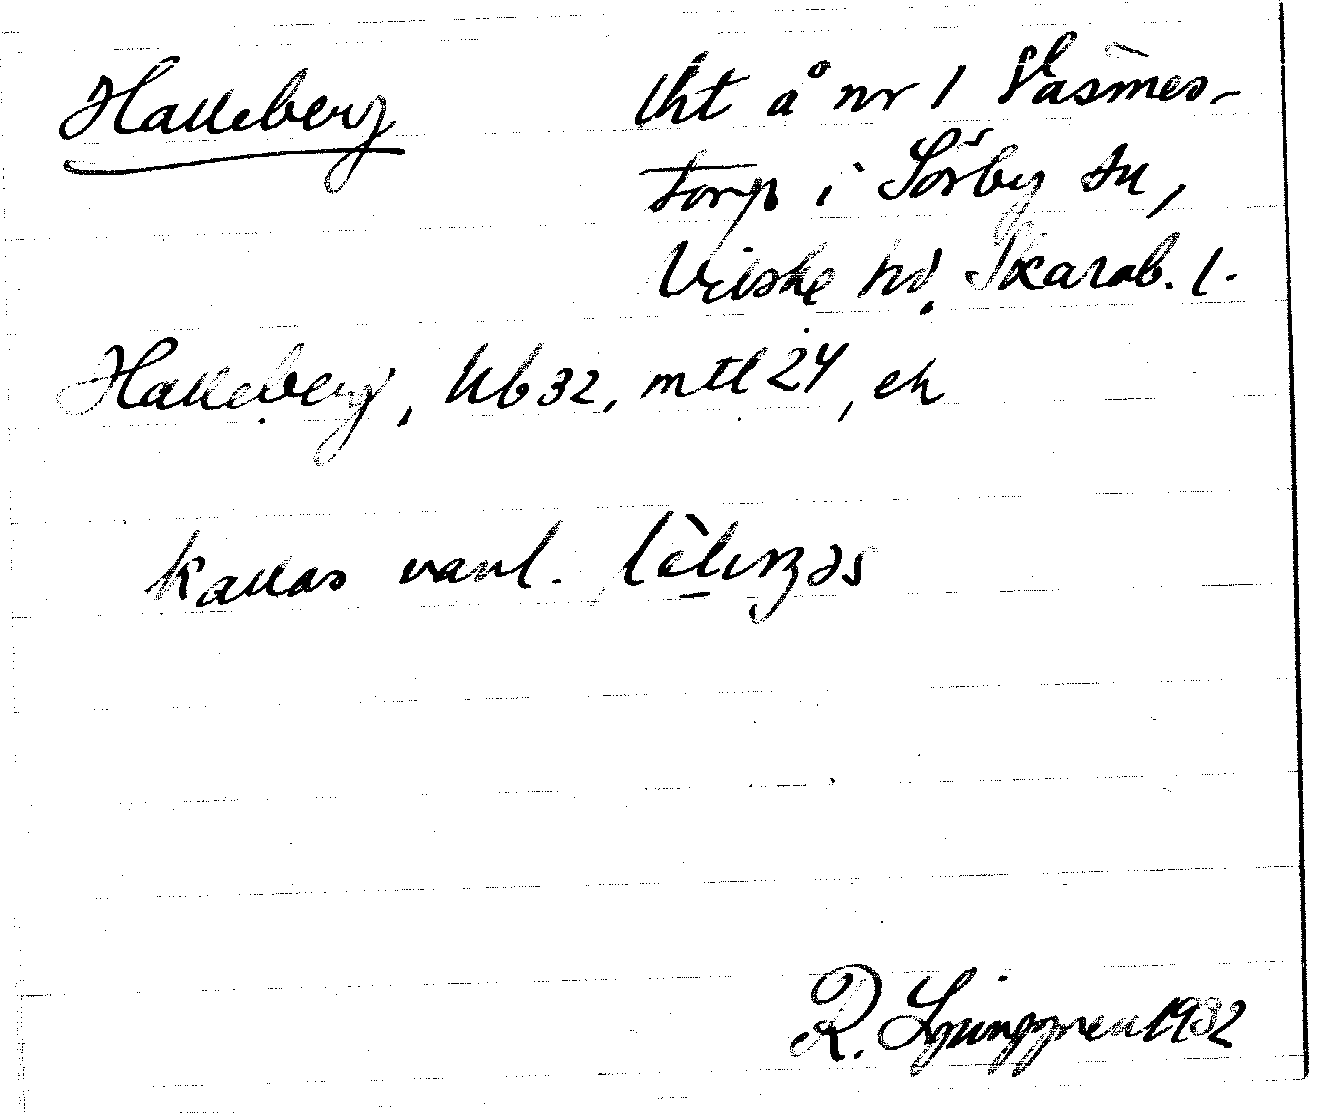 Halleberg
lht å nr 1 Åasmes-
torp i Sörby sn,
Vilske hd, Skarab. l.
Halleberg, Ub 32, mtl 24, ek
kallas vanl.
R. Ljunggren 1932